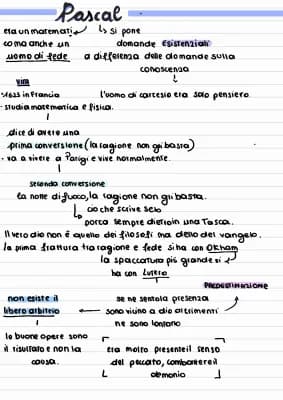 Pascal
era un matematico ↳ si pone
co ma anche un domande esistenziali
uomo di fede. a differenza delle domande sulla
conoscenza
vita
-1623 in Francia l'uomo di cartesio era solo pensiero.
-studia matematica e fisica.
dice di avere una
prima conversione (la ragione non gli basta)
- va a vivere a Parigi e vive normalmente.
seconda conversione
la notte di fuoco, la ragione non gli basta.
↳ cio che scrive se lo
porta sempre dietro in una tasca.
Il vero dio non è quello dei filosofi ma dello del vangelo.
la prima frattura tra ragione e fede si ha con Okham
la spaccatura più grande si
ha con Lutero
PREDESTINAZIONE
non esiste il se ne sento la presenza
libero arbitrio ← sono vicino a dio altrimenti
ne sono lontano
le buone opere sono
il risultato e non la era molto presente il senso
causa. del peccato, combattere il
demonio